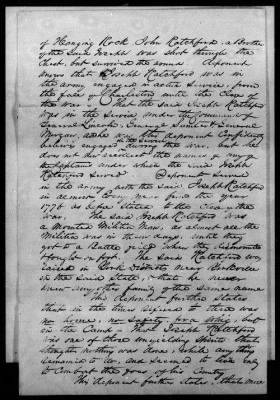 of Hanging Rock John Ratchford, a Brother
of the said Joseph was shot through the
Chest, but survived the wound Deponent
knows that Joseph Ratchford was in
the army engaged in active service, from
the fall of Charleston until the Close of
the war. That the said Joseph Ratchford
was in the service under the Command of
General Greene, General Sumter & General
Morgan, and he was this deponent Confidently
believes engaged in the service during the war, but he
does not now recollect the names of any
Captains under whom the said Joseph
Ratchford served. Deponent served
in the army with the said Joseph Ratchford
in almost every year from the year
1776 as before stated to the Close of the
war. The said Joseph Ratchford was
a mounted Militia Man, as almost all the
Militia was in those days, until they
got to a Battle field when they dismounted
& fought on foot. The said Ratchford was
raised in York District near Yorkville
in the said State, & that he never
knew any other family of the same name
This deponent further states
that in the times referred to there was
no home, no safety, for a Whig, but
in the Camp - That Joseph Ratchford
was one of those unyielding spirits that
thought nothing was done, while any thing
remained to do, and seemed to live only
to Combat the foes of his Country
This deponent further states, that once